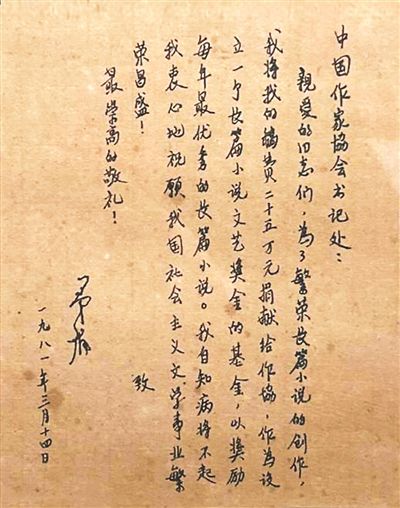 中国作家協会书记处：
親爱的同志们，為了繁荣长篇小说的创作，
我将我的稿费二十五万元捐献给作協，作為设
立一个长篇小说文艺獎金的基金，以獎励
每年最优秀的长篇小说。我自知病将不起
我衷心地祝願我国社会主义文学事业繁
荣昌盛！ 致
最崇高的敬礼！
茅盾
一九八一年三月十四日